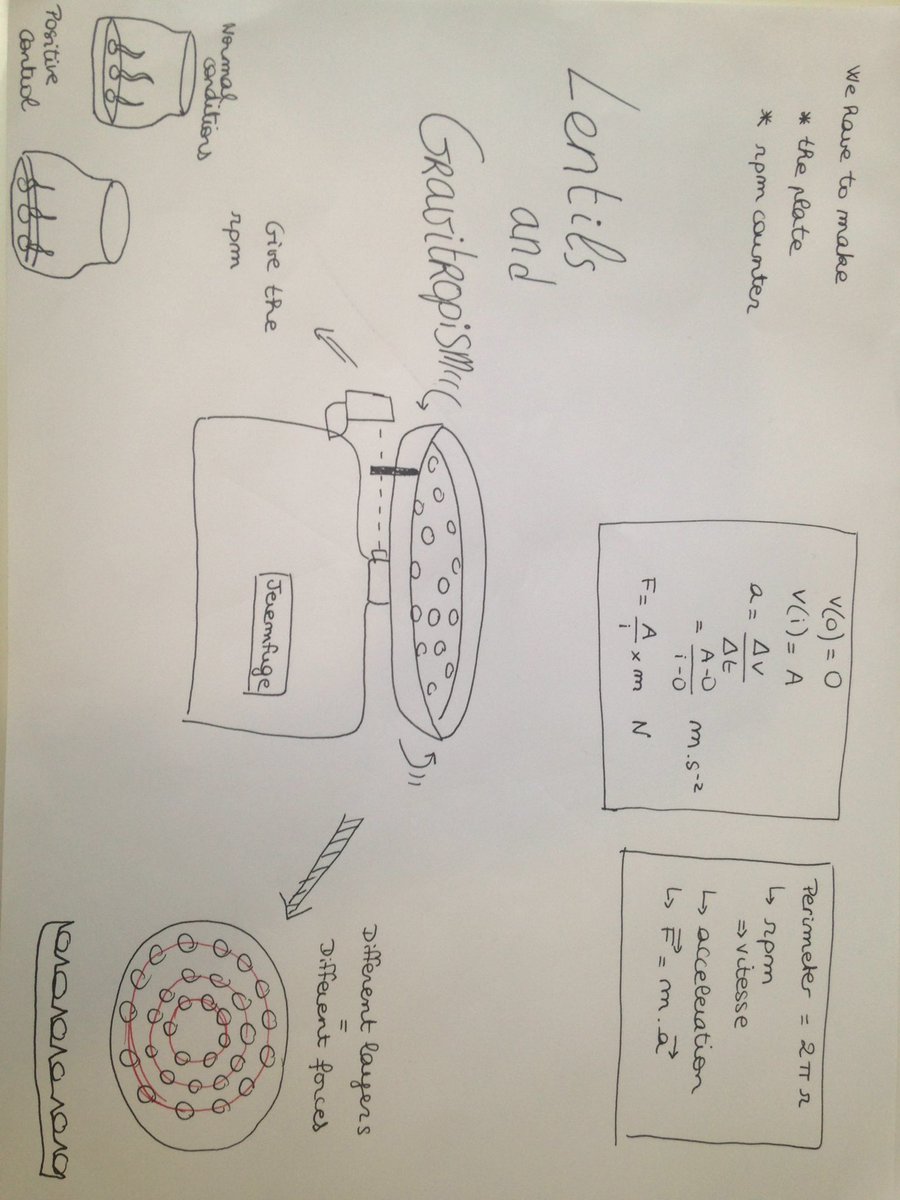 We have to make
* the plate
* rpm counter
Lentils
and
Gravitropism
v(0) = 0
v(i) = A
a = Δv/Δt
= A-0/i-0 m.s⁻²
F = A/i × m N
Perimeter = 2πr
↳ rpm
⇒ vitesse
↳ acceleration
↳ F⃗ = m.a⃗
Give the
rpm
Jeremfuge
Different layers
=
Different forces
Normal
conditions
Positive
control